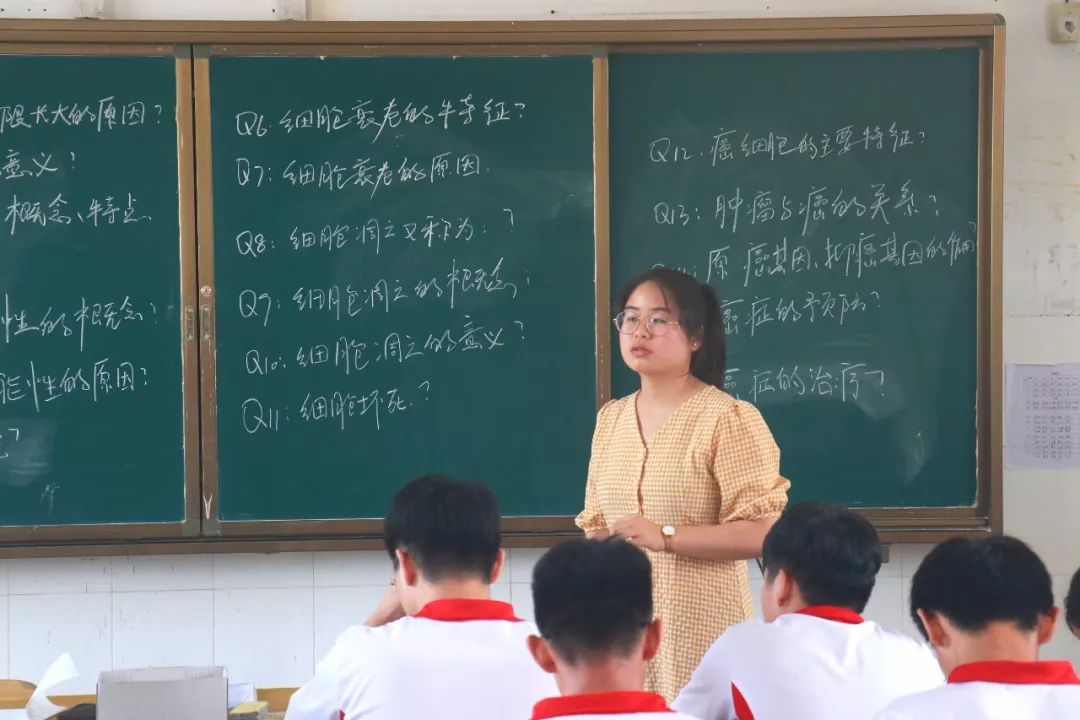 限长大的原因?
意义?
概念、特点
性的概念?
能性的原因?
Q6:细胞衰老的特征?
Q7:细胞衰老的原因.
Q8:细胞凋亡又称为:?
Q9:细胞凋亡的概念;
Q10:细胞凋亡的意义?
Q11:细胞坏死.?
Q12:癌细胞的主要特征?
Q13:肿瘤与癌的关系?
原癌基因、抑癌基因的作用?
癌症的预防?
癌症的治疗?